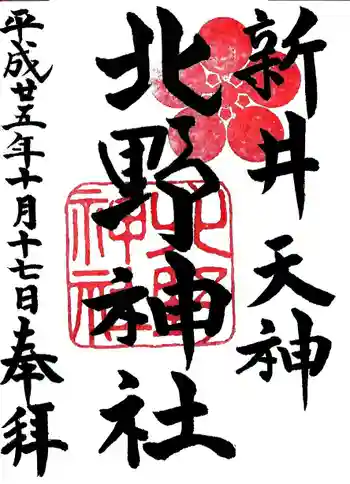 新井天神
北野神社
平成廿五年十月十七日奉拝
北野神社